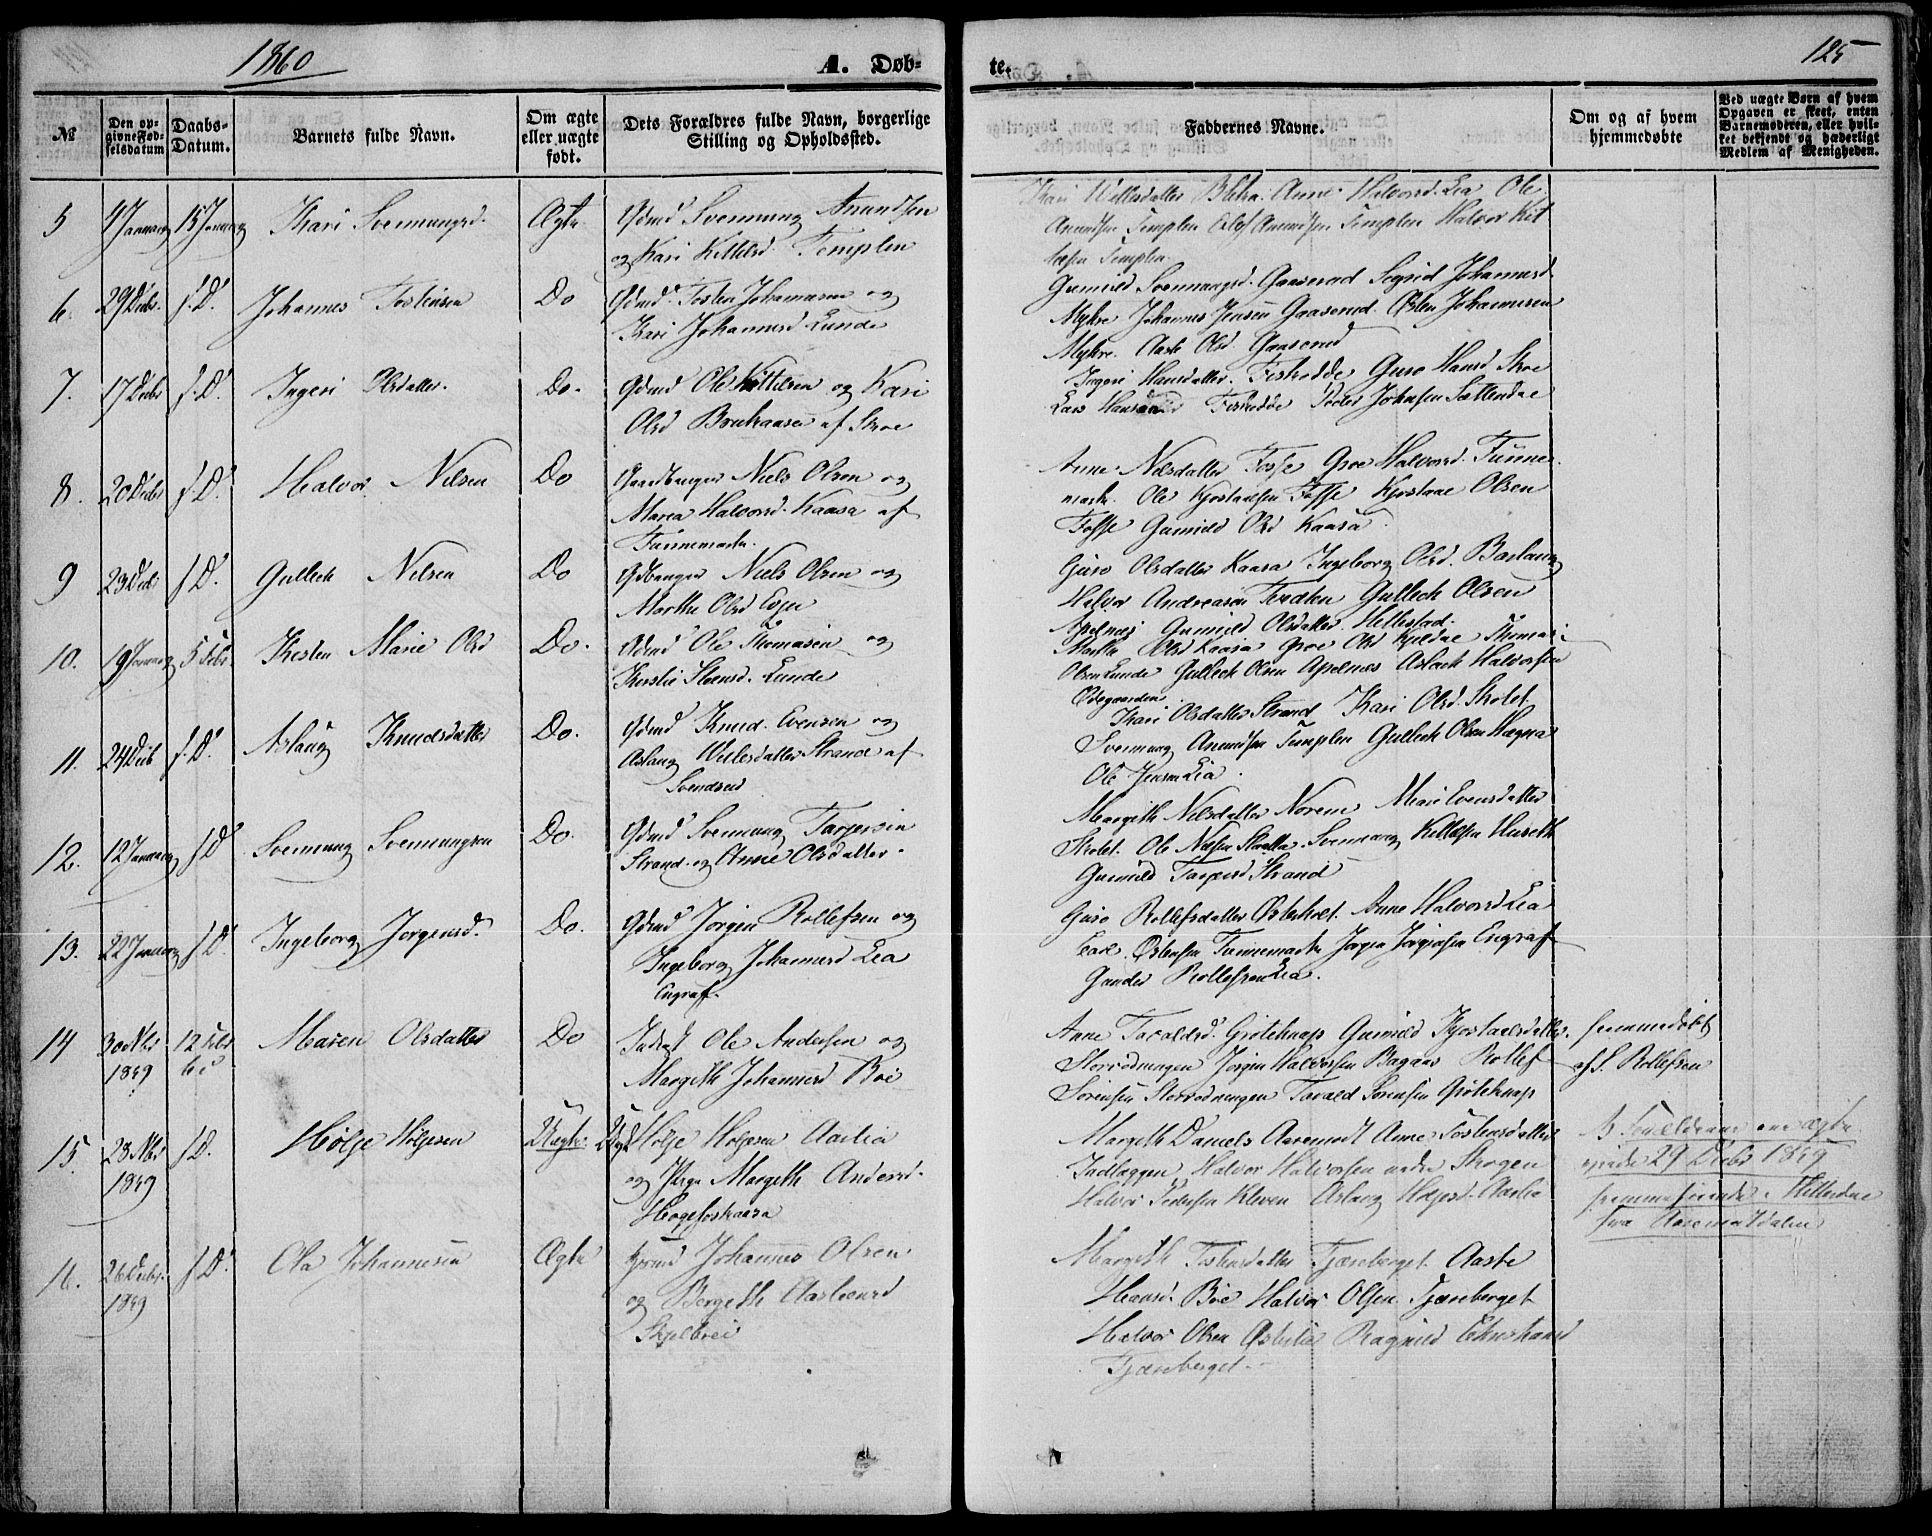 1860
A. Døb-
te.
125
№
Den op-
givne Fød-
selsdatum
Daabs-
Datum.
Barnets fulde Navn.
Om ægte
eller uægte
født.
Dets Forældres fulde Navn, borgerlige
Stilling og Opholdssted.
Faddernes Navne.
Om og af hvem
hjemmedøbte
Ved uægte Børn af hvem
Opgaven er skeet, enten
Barnemoderen, eller hvil-
ket bekjendt og hæderligt
Medlem af Menigheden.
5 4 Januar 15 Januar Kari Svennungsd. Ægte
Gdmd Svennung Anundsen
og Kari Kittilsd. Templen
Anne Halvorsd. Lia Ole
Anundsen Templen Oluf Anundsen Templen Halvor Kit
telsen Templen
6. 29 Decbr. s. D. Johannes Tostensen Do
Gdmd Tosten Johannesen og
Kari Johannesd Lunde
Gunild Svennungsd. Gaaserud Sigrid Johannesd
Myhre Johannes Jensen Gaaserud. Østen Johannesen
Myhre. Aaste Olsd. Gaaserud
7. 17 Decbr s. D. Ingeri Olsdatter. Do.
Gdmd Ole Kittelsen og Kari
Olsd Bruhaasen af Skoe
Ingeri Hansdatter. Fiskodde Guro Hansd Skoe
Lars Hansen Fiskodde Peder Johnsen Sættendae
8. 20 Decbr s. D. Halvor Nilsen Do
Gaardbruger Niels Olsen og
Maria Halvorsd. Kaasa af
Tunnemark.
Anne Nilsdatter Fosse Groe Halvorsd. Tunne-
mark. Ole Kjostuelsen Fosse Kjostuel Olsen
Fosse Gunild Olsd Kaasa.
9 23 Decb s. D. Gullech Nilsen Do
Gdbruger Niels Olsen og
Marthe Olsd Evju
Guro Olsdatter Kaasa Ingeborg Olsd. Baslaug
Halvor Andreasen Gullech Olsen
Apelnæs Gunild Olsdatter Hellestad.
10. 19 Januar 5 Febr. Kirsten Marie Olsd Do.
Gdmd Ole Thomasen og
Kirstie Steensd. Lunde
Martha Olsd Kaasa Groe Olsd Kjeldae Thomas
Olsen Lunde Gullech Olsen Apelnæs Aslach Halvorsen
Ødegaarden
11. 24 Decb s. D. Aslaug Knudsdatter Do.
Gdmd Knud Evensen og
Aslaug Nielsdatter Strand af
Svendsrud
Kari Olsdatter Strand Kari Olsd. Skolet
Svennung Anundsen Templen Gullech Olsen Hægna
Ole Jensen Lia.
12. 12 Januar s. D. Svennung Svennungsen Do.
Gdmd Svennung Targersen
Strand og Anne Olsdatter.
Margith Nilsdatter Norem Mari Evensdatter
Skolet. Ole Nilsen Svennung Kittilsen Hureth
Gunild Targersd Strand
13. 22 Januar s. D. Ingeborg Jørgensd. Do.
Gdmd Jørgen Rollefsen og
Ingeborg Johannesd Lia
Engraf.
Guro Rollefsdatter Østerholt. Anne Halvorsd Lia
Carl. Østensen Tunnemark Jørgen Jørgensen Engraf
Gunder Rollefsen Lia.
14 30 Nbr 1859 12 Febr Maren Olsdatter Do
Inderst Ole Andersen og
Margith Johannesd Bøe
Anne Tovaldsd. Grøteknap Gunild Kjostuelsdatter
Storrødningen Jørgen Halvorsen Bagaas Rollef
Sørensen Storrødningen Tovald Sørensen Grøteknap
hjemmedøbt
af S. Rollefsen
15. 28 Nbr 1859 s. D. Hølje Holjesen Uægte.
Ungk. Holje Holjesen Aaslia
og Pige Margith Andersd.
Hogefoskaasa
Margith Daniels Aaremodt Anne Tostensdatter
Indlæggen, Halvor Halvorsen nedre Skogen
Halvor Pedersen Kleven Aslaug Holjesd. Aaslia
Forældrene ere ægte
viede 29 Decbr 1859
16. 26 Decbr. 1859 s. D. Ole Johannesen Ægte
Gdmd Johannes Olsen
og Bergith Aasloensd
Skjelbrei
Margith Tostensdatter Tjæreberget. Aaste
Hansd. Bøe Halvor Olsen Tjæreberget
Halvor Olsen Østerlia Ragnild
Tjæreberget.